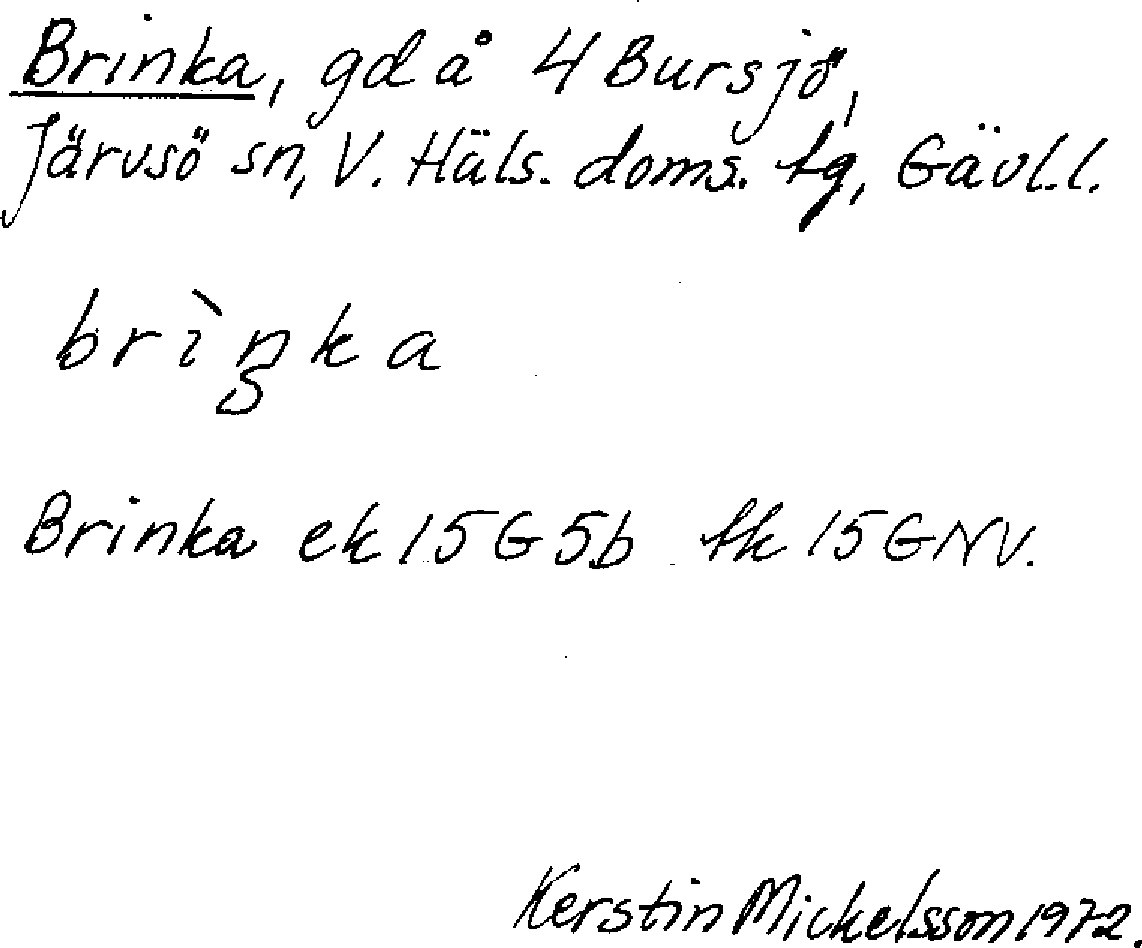 Brinka, gd å 4 Bursjö,
Järvsö sn, V. Häls. doms. tg, Gävl.l.
brìŋka
Brinka ek 15G5b tk 15GNV.
Kerstin Mickelsson 1972.